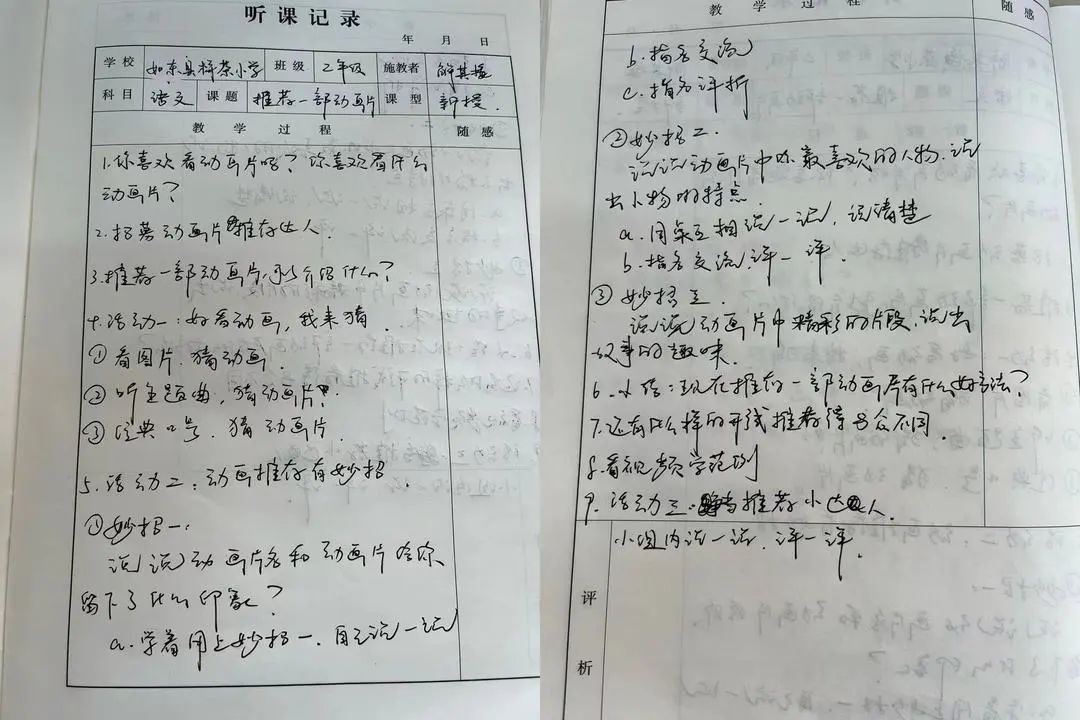 听课记录
年 月 日
学校 如东县栟茶小学 班级 二年级 施教者
科目 语文 课题 推荐一部动画片 课型 新授
教 学 过 程 随 感
1.你喜欢看动画片吗？你喜欢看什么
动画片？
2.招募动画片推荐达人.
3.推荐一部动画片，可以介绍什么？
4.活动一：好看动画，我来猜.
①看图片.猜动画.
②听主题曲，猜动画片.
③经典口号.猜动画片.
5.活动二：动画推荐有妙招.
①妙招一：
说说动画片名和动画片给你
留下了什么印象？
a.学着用上妙招一.自己说一说
教 学 过 程 随 感
b.指名交流
c.指名评析
②妙招二.
说说动画片中你最喜欢的人物.说
出人物的特点.
a.同桌互相说一说，说清楚
b.指名交流，评一评.
③妙招三.
说说动画片中精彩的片段.说出
故事的趣味.
6.小结：现在推荐一部动画片有什么好方法？
7.还有什么样的开线推荐得与众不同.
8.看视频学范例
9.活动三.争当推荐小达人.
小组内说一说.评一评.
评
析